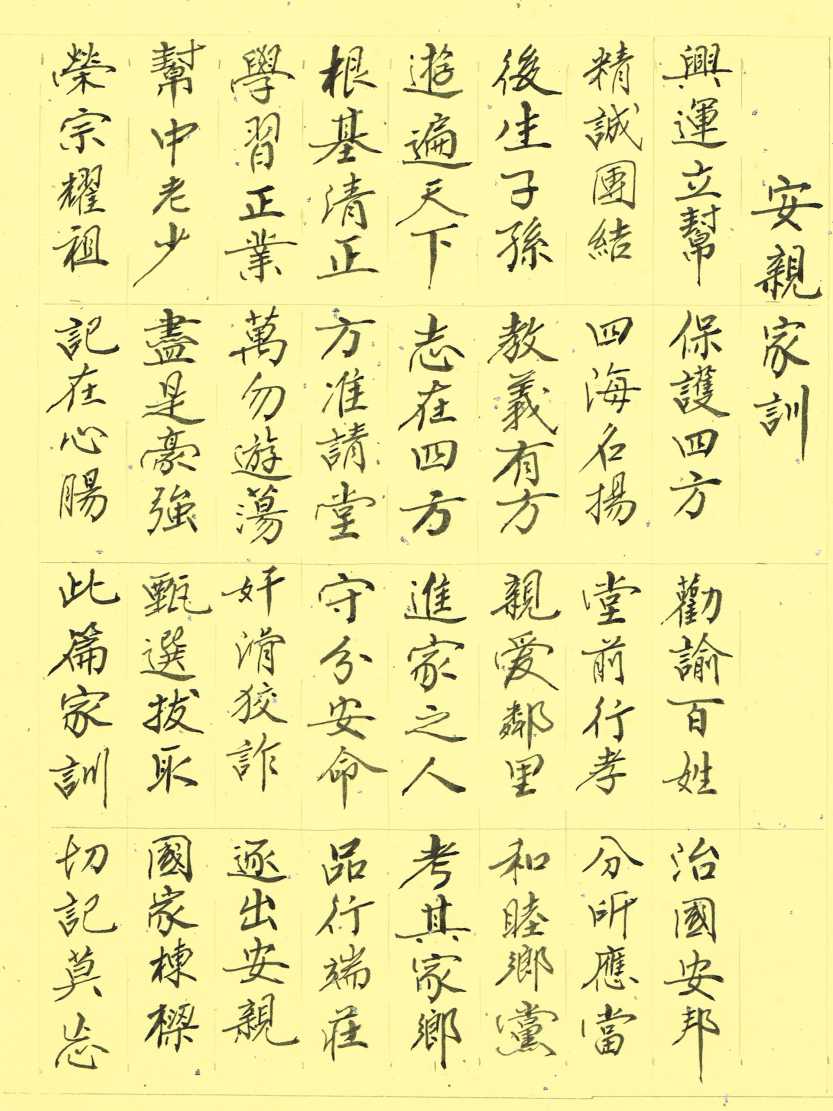 安親家訓
興運立幫 保護四方 勸諭百姓 治國安邦
精誠團結 四海名揚 堂前行孝 分所應當
後生子孫 教義有方 親愛鄰里 和睦鄉黨
遊遍天下 志在四方 進家之人 考其家鄉
根基清正 方准請堂 守分安命 品行端莊
學習正業 萬勿遊蕩 奸滑狡詐 逐出安親
幫中老少 盡是豪強 甄選拔取 國家棟樑
榮宗耀祖 記在心腸 此篇家訓 切記莫忘